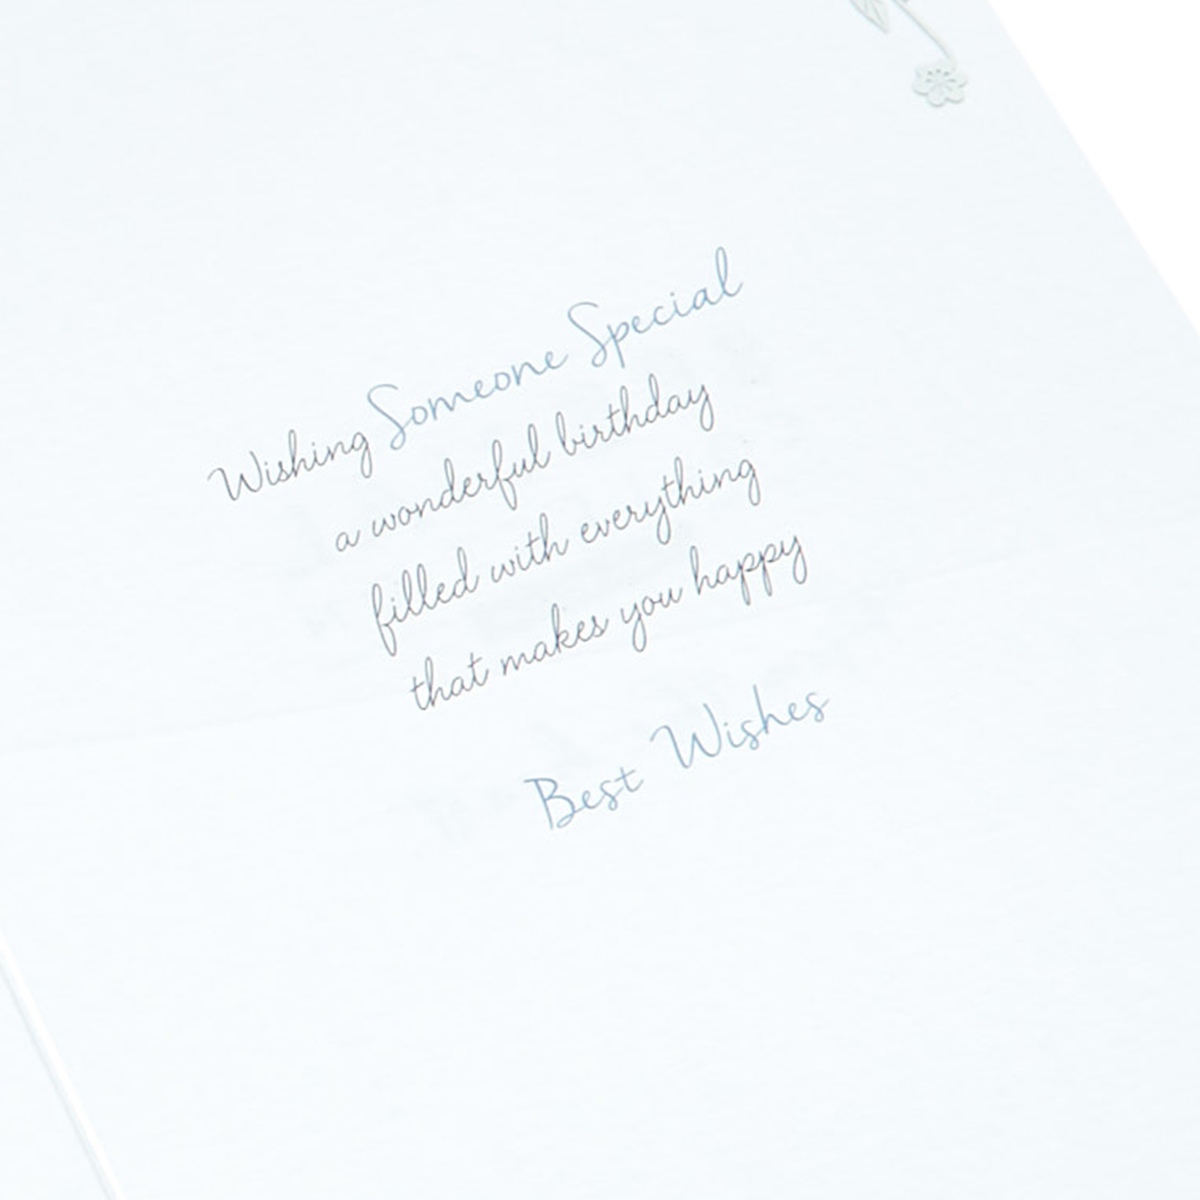 Wishing Someone Special
a wonderful birthday
filled with everything
that makes you happy
Best Wishes